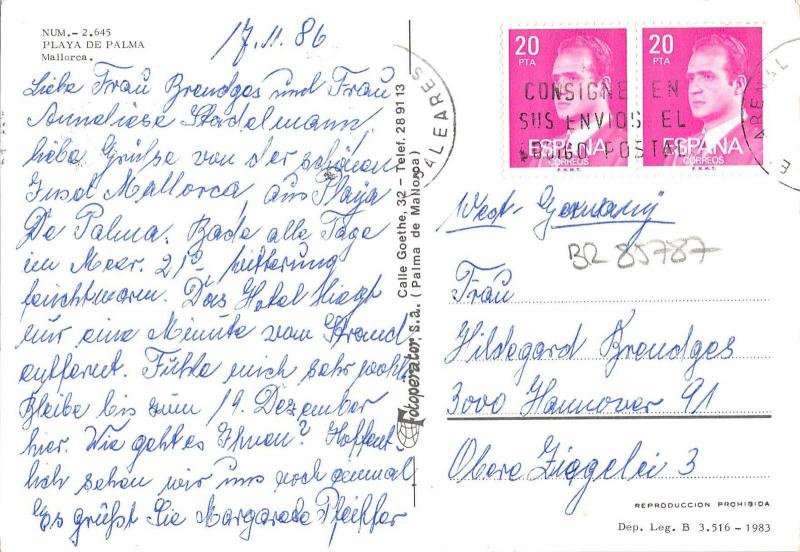 NUM. - 2.645
PLAYA DE PALMA
Mallorca.
17.11.86
Liebe Frau Brendges und Frau
Anneliese Stadelmann,
liebe Grüße von der schönen
Insel Mallorca, aus Playa
De Palma. Bade alle Tage
im Meer. 21° Witterung
feuchtwarm. Das Hotel liegt
nur eine Minute vom Strand
entfernt. Fühle mich sehr wohl.
Bleibe bis zum 19. Dezember
hier. Wie geht es Ihnen? Hoffent-
lich sehen wir uns noch einmal
Es grüßt Sie Margarete Pfeiffer
Fotoperator, s.a.
Calle Goethe, 32 - Telef. 289113
(Palma de Mallorca)
BALEARES
20
PTA
ESPAÑA
CORREOS
F.N.M.T.
20
PTA
ESPAÑA
CORREOS
F.N.M.T.
CONSIGNE EN
SUS ENVIOS EL
CODIGO POSTAL
ARENAL
West-Germany
BR 85787
Frau
Hildegard Brendges
3000 Hannover 91
Obere Ziegelei 3
REPRODUCCION PROHIBIDA
Dep. Leg. B 3.516 - 1983